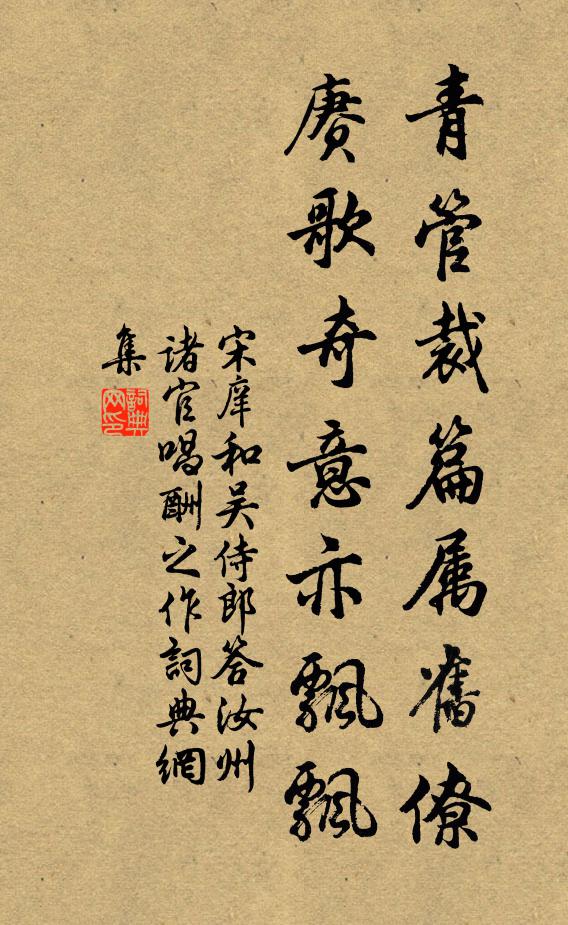 青管裁篇属舊僚
赓歌奇意亦飄飄
宋庠和吴侍郎答汝州
诸官唱酬之作詞典網
集
詞典
网印